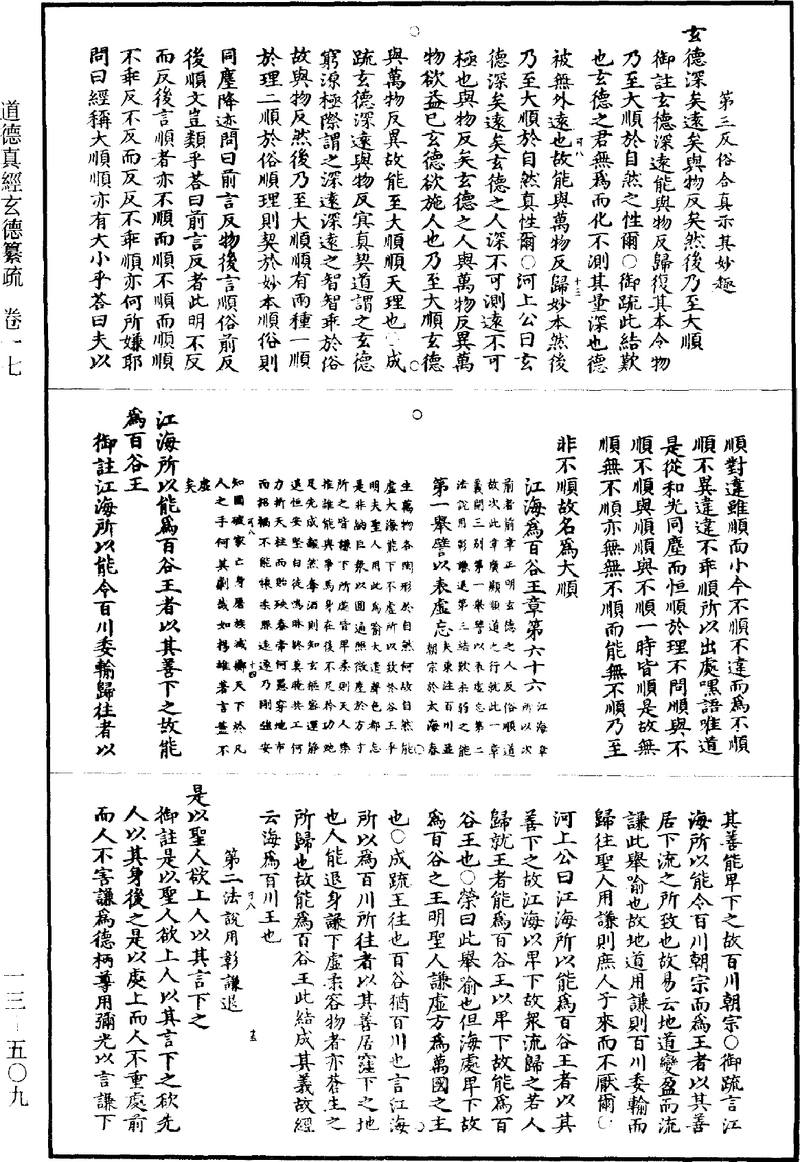 道德真經玄德纂疏　卷一七
一三—五〇九
第三反俗合真示其妙趣
玄德深矣遠矣與物反矣然後乃至大順
御註玄德深遠能與物反歸復其本令物
乃至大順於自然之性爾○御疏此結歎
也玄德之君無為而化不測其量深也德
被無外遠也故能與萬物反歸妙本然後
乃至大順於自然真性爾○河上公曰玄
德深矣遠矣玄德之人深不可測遠不可
極也與物反矣玄德之人與萬物反異萬
物欲益已玄德欲施人也乃至大順玄德
與萬物反異故能至大順順天理也○成
疏玄德深遠與物反㝠真契道謂之玄德
窮源極際謂之深遠深遠之智智乖於俗
故與物反然後乃至大順順有兩種一順
於理二順於俗順理則契於妙本順俗則
同塵降迹問曰前言反物後言順俗前反
後順文豈類乎荅曰前言反者此明不反
而反後言順者亦不順而順不順而順順
不乖反不反而反反不乖順亦何所嫌耶
問曰經稱大順順亦有大小乎荅曰夫以
順對違雖順而小今不順不違而為不順
順不異違違不乖順所以出處嘿語唯道
是從和光同塵而恒順於理不問順與不
順不與順順與不順一時皆順是故無
順無不順亦無無不順而能無不順乃至
非不順故名為大順
江海為百谷王章第六十六
江海章所以次
前者前章正明玄德之人反俗順道
故次此章廣顯順道之行就此一章
義開三別第一舉譬以表虛忘第二
法說用彰謙退第三結歎柔弱之能
第一舉譬以表虛忘
夫東注百川並
朝宗於大海春
生萬物各陶形於自然何故自然能
虛大海能下不虛所以致於谷王乎
明夫聖人用此為喻大道聲色都忘
是非納巨衆以圓通照微塵於方寸
所之皆謙下所處皆卑柔則天人樂
推誰能與爭焉身在後不凡矜功
江海所以能為百谷王者以其善下之故能
為百谷王
御註江海所以能令百川委輸歸往者以
其善能卑下之故百川朝宗○御疏言江
海所以能令百川朝宗而為王者以其善
居下流之所致也故易云地道變盈而流
謙此舉喻也故地道用謙則百川委輸而
歸往聖人用謙則庶人子來而不厭爾○
河上公曰江海所以能為百谷王者以其
善下之故江海以卑下故衆流歸之若人
歸就王者能為百谷王以卑下故能為百
谷王也○榮曰此舉喻也但海處卑下故
為百谷之王明聖人謙虛方為萬國之主
也○成疏王往也百谷猶百川也言江海
所以為百川所往者以其善居窪下之地
也人能退身謙下虛柔容物者亦蒼生之
所歸也故能為百谷王此結成其義故經
云海為百川王也
第二法說用彰謙退
是以聖人欲上人以其言下之
御註是以聖人欲上人以其言下之欲先
人以其身後之是以處上而人不重處前
而人不害謙為德柄尊用彌光以言謙下